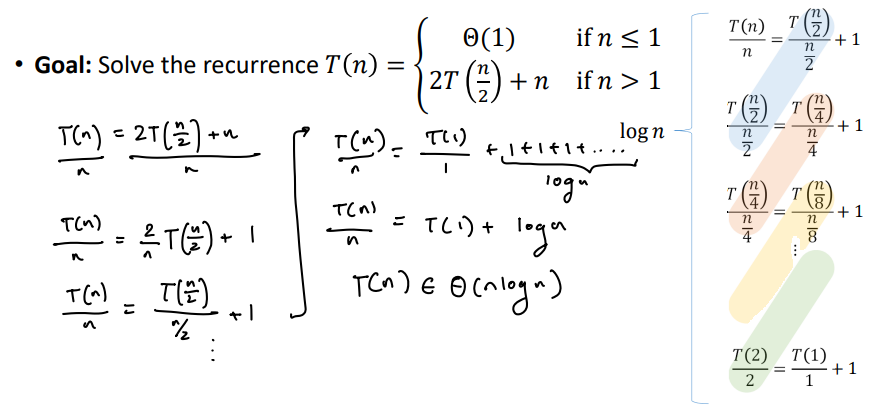 • Goal: Solve the recurrence T(n) = { Θ(1) if n ≤ 1
2T(n/2) + n if n > 1
T(n)/n = (2T(n/2) + n)/n
T(n)/n = 2/n T(n/2) + 1
T(n)/n = T(n/2)/(n/2) + 1
⋮
T(n)/n = T(1)/1 + 1+1+1+....
log n
T(n)/n = T(1) + log n
T(n) ∈ Θ(n log n)
log n
T(n)/n = T(n/2)/(n/2) + 1
T(n/2)/(n/2) = T(n/4)/(n/4) + 1
T(n/4)/(n/4) = T(n/8)/(n/8) + 1
⋮
T(2)/2 = T(1)/1 + 1